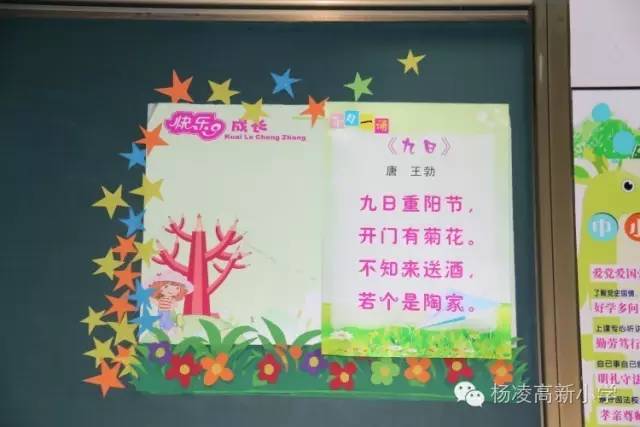 快乐
成长
Kuai Le Cheng Zhang
每日一诵
《九日》
唐 王勃
九日重阳节，
开门有菊花。
不知来送酒，
若个是陶家。
中小
爱党爱国
好学多问
上课专心听
勤劳笃行
自己事自己
明礼守法
孝亲尊
杨凌高新小学